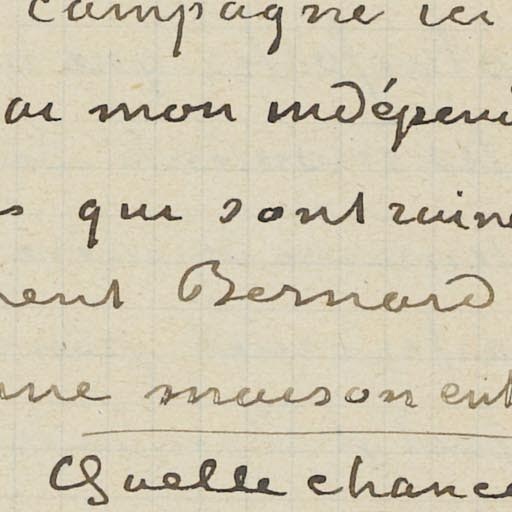 campagne ici
ai mon indépen
s qui sont ruine
ent Bernard
une maison ent
Quelle chance